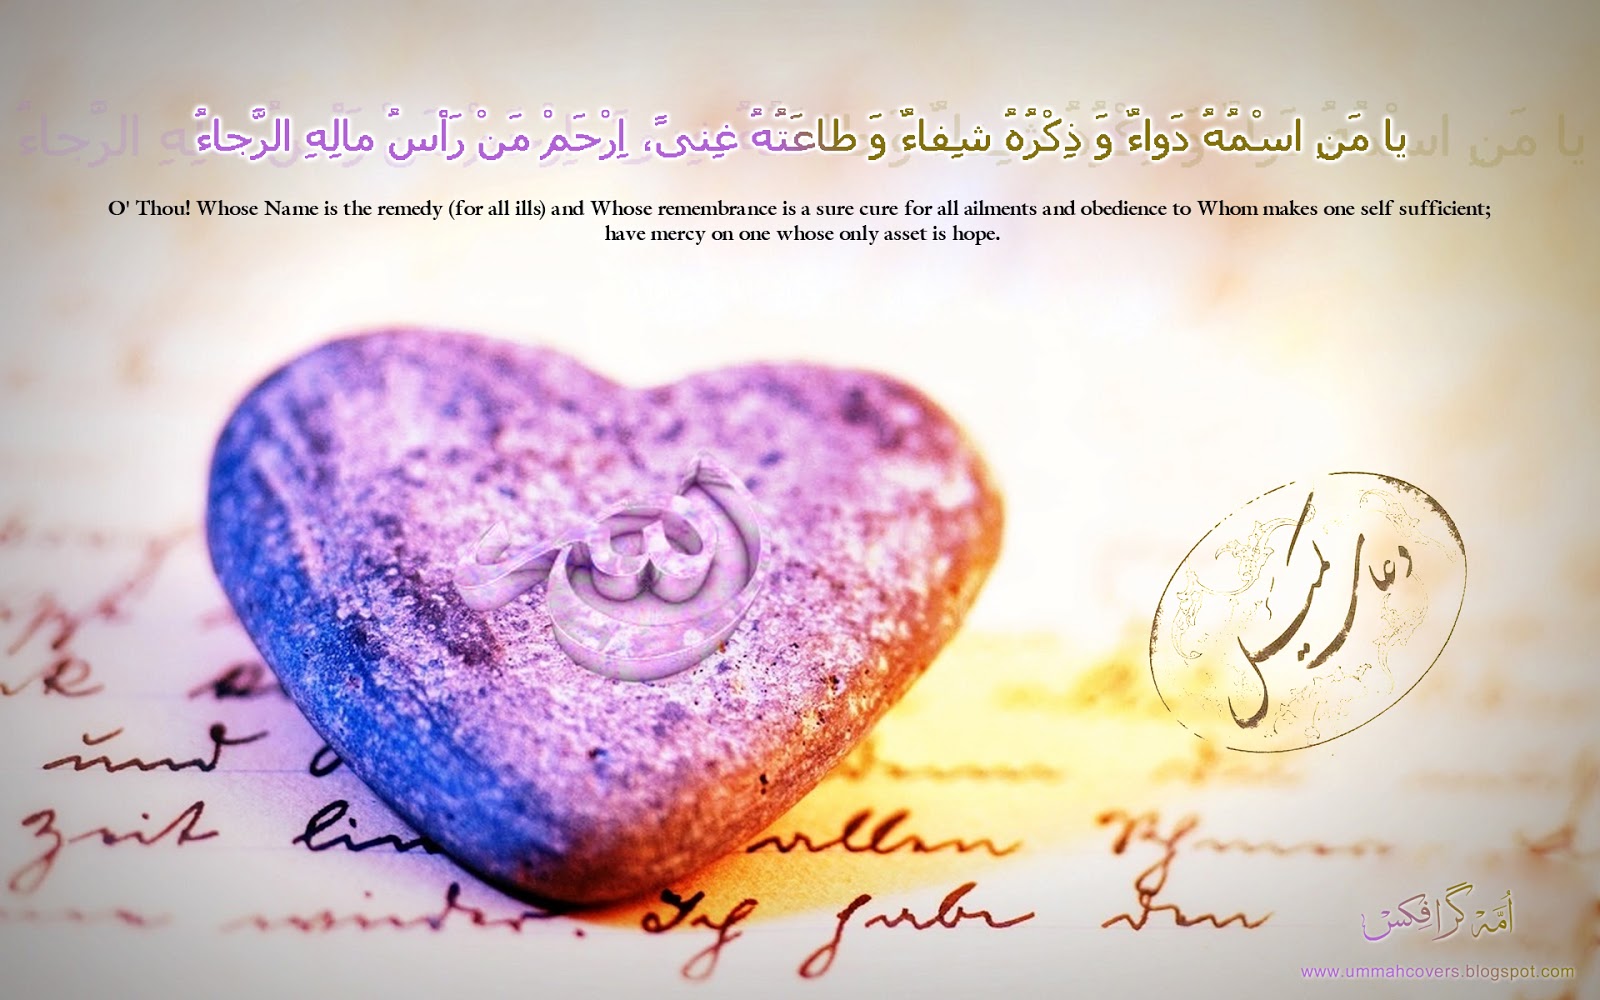 يا مَنِ اسْمُهُ دَواءٌ وَ ذِكْرُهُ شِفاءٌ وَ طاعَتُهُ غِنىً، اِرْحَمْ مَنْ رَأْسُ مالِهِ الرَّجاءُ
O' Thou! Whose Name is the remedy (for all ills) and Whose remembrance is a sure cure for all ailments and obedience to Whom makes one self sufficient;
have mercy on one whose only asset is hope.
الله
دعای کمیل
und
Zeit
allen
wieder. Ich habe den
اُمَّہ گرافِکس
www.ummahcovers.blogspot.com